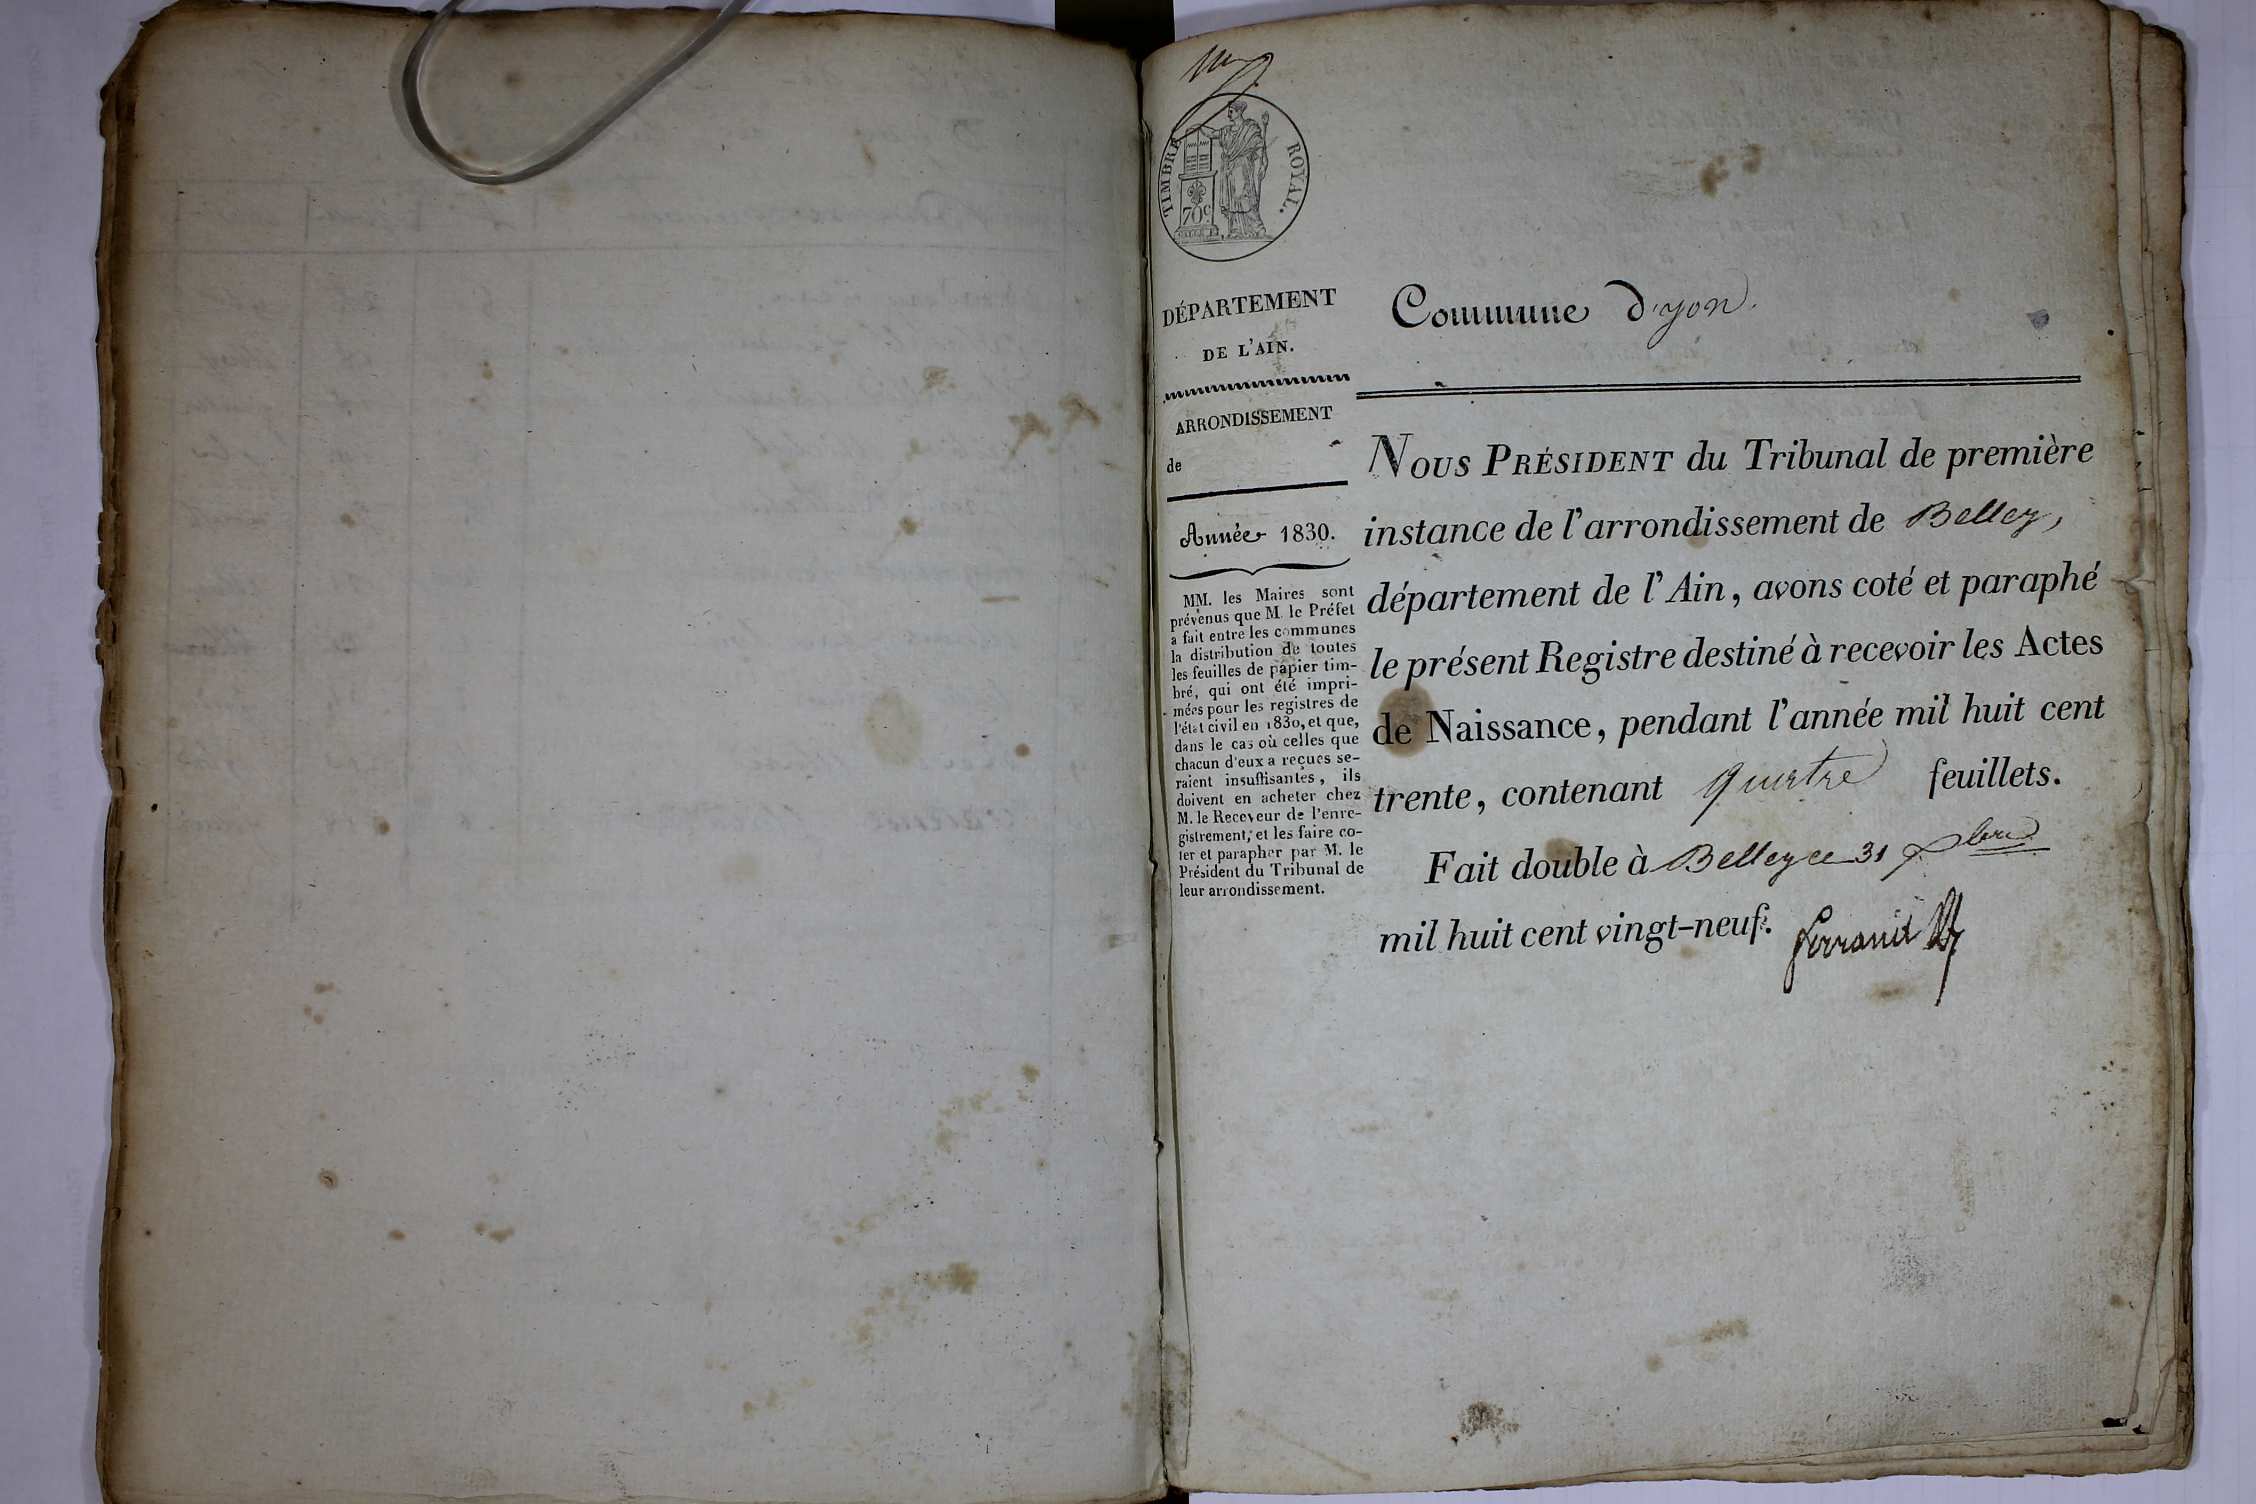 TIMBRE ROYAL.
70c
DÉPARTEMENT
DE L'AIN.
ARRONDISSEMENT
de
Année 1830.
MM. les Maires sont
prévenus que M. le Préfet
a fait entre les communes
la distribution de toutes
les feuilles de papier tim-
bré, qui ont été impri-
mées pour les registres de
l'état civil en 1830, et que,
dans le cas où celles que
chacun d'eux a reçues se-
raient insuffisantes, ils
doivent en acheter chez
M. le Receveur de l'enre-
gistrement, et les faire co-
ter et parapher par M. le
Président du Tribunal de
leur arrondissement.
Commune d'yon.
NOUS PRÉSIDENT du Tribunal de première
instance de l'arrondissement de Belley,
département de l'Ain, avons coté et paraphé
le présent Registre destiné à recevoir les Actes
de Naissance, pendant l'année mil huit cent
trente, contenant quatre feuillets.
Fait double à Belley ce 31 Xbre
mil huit cent vingt-neuf. ferrand